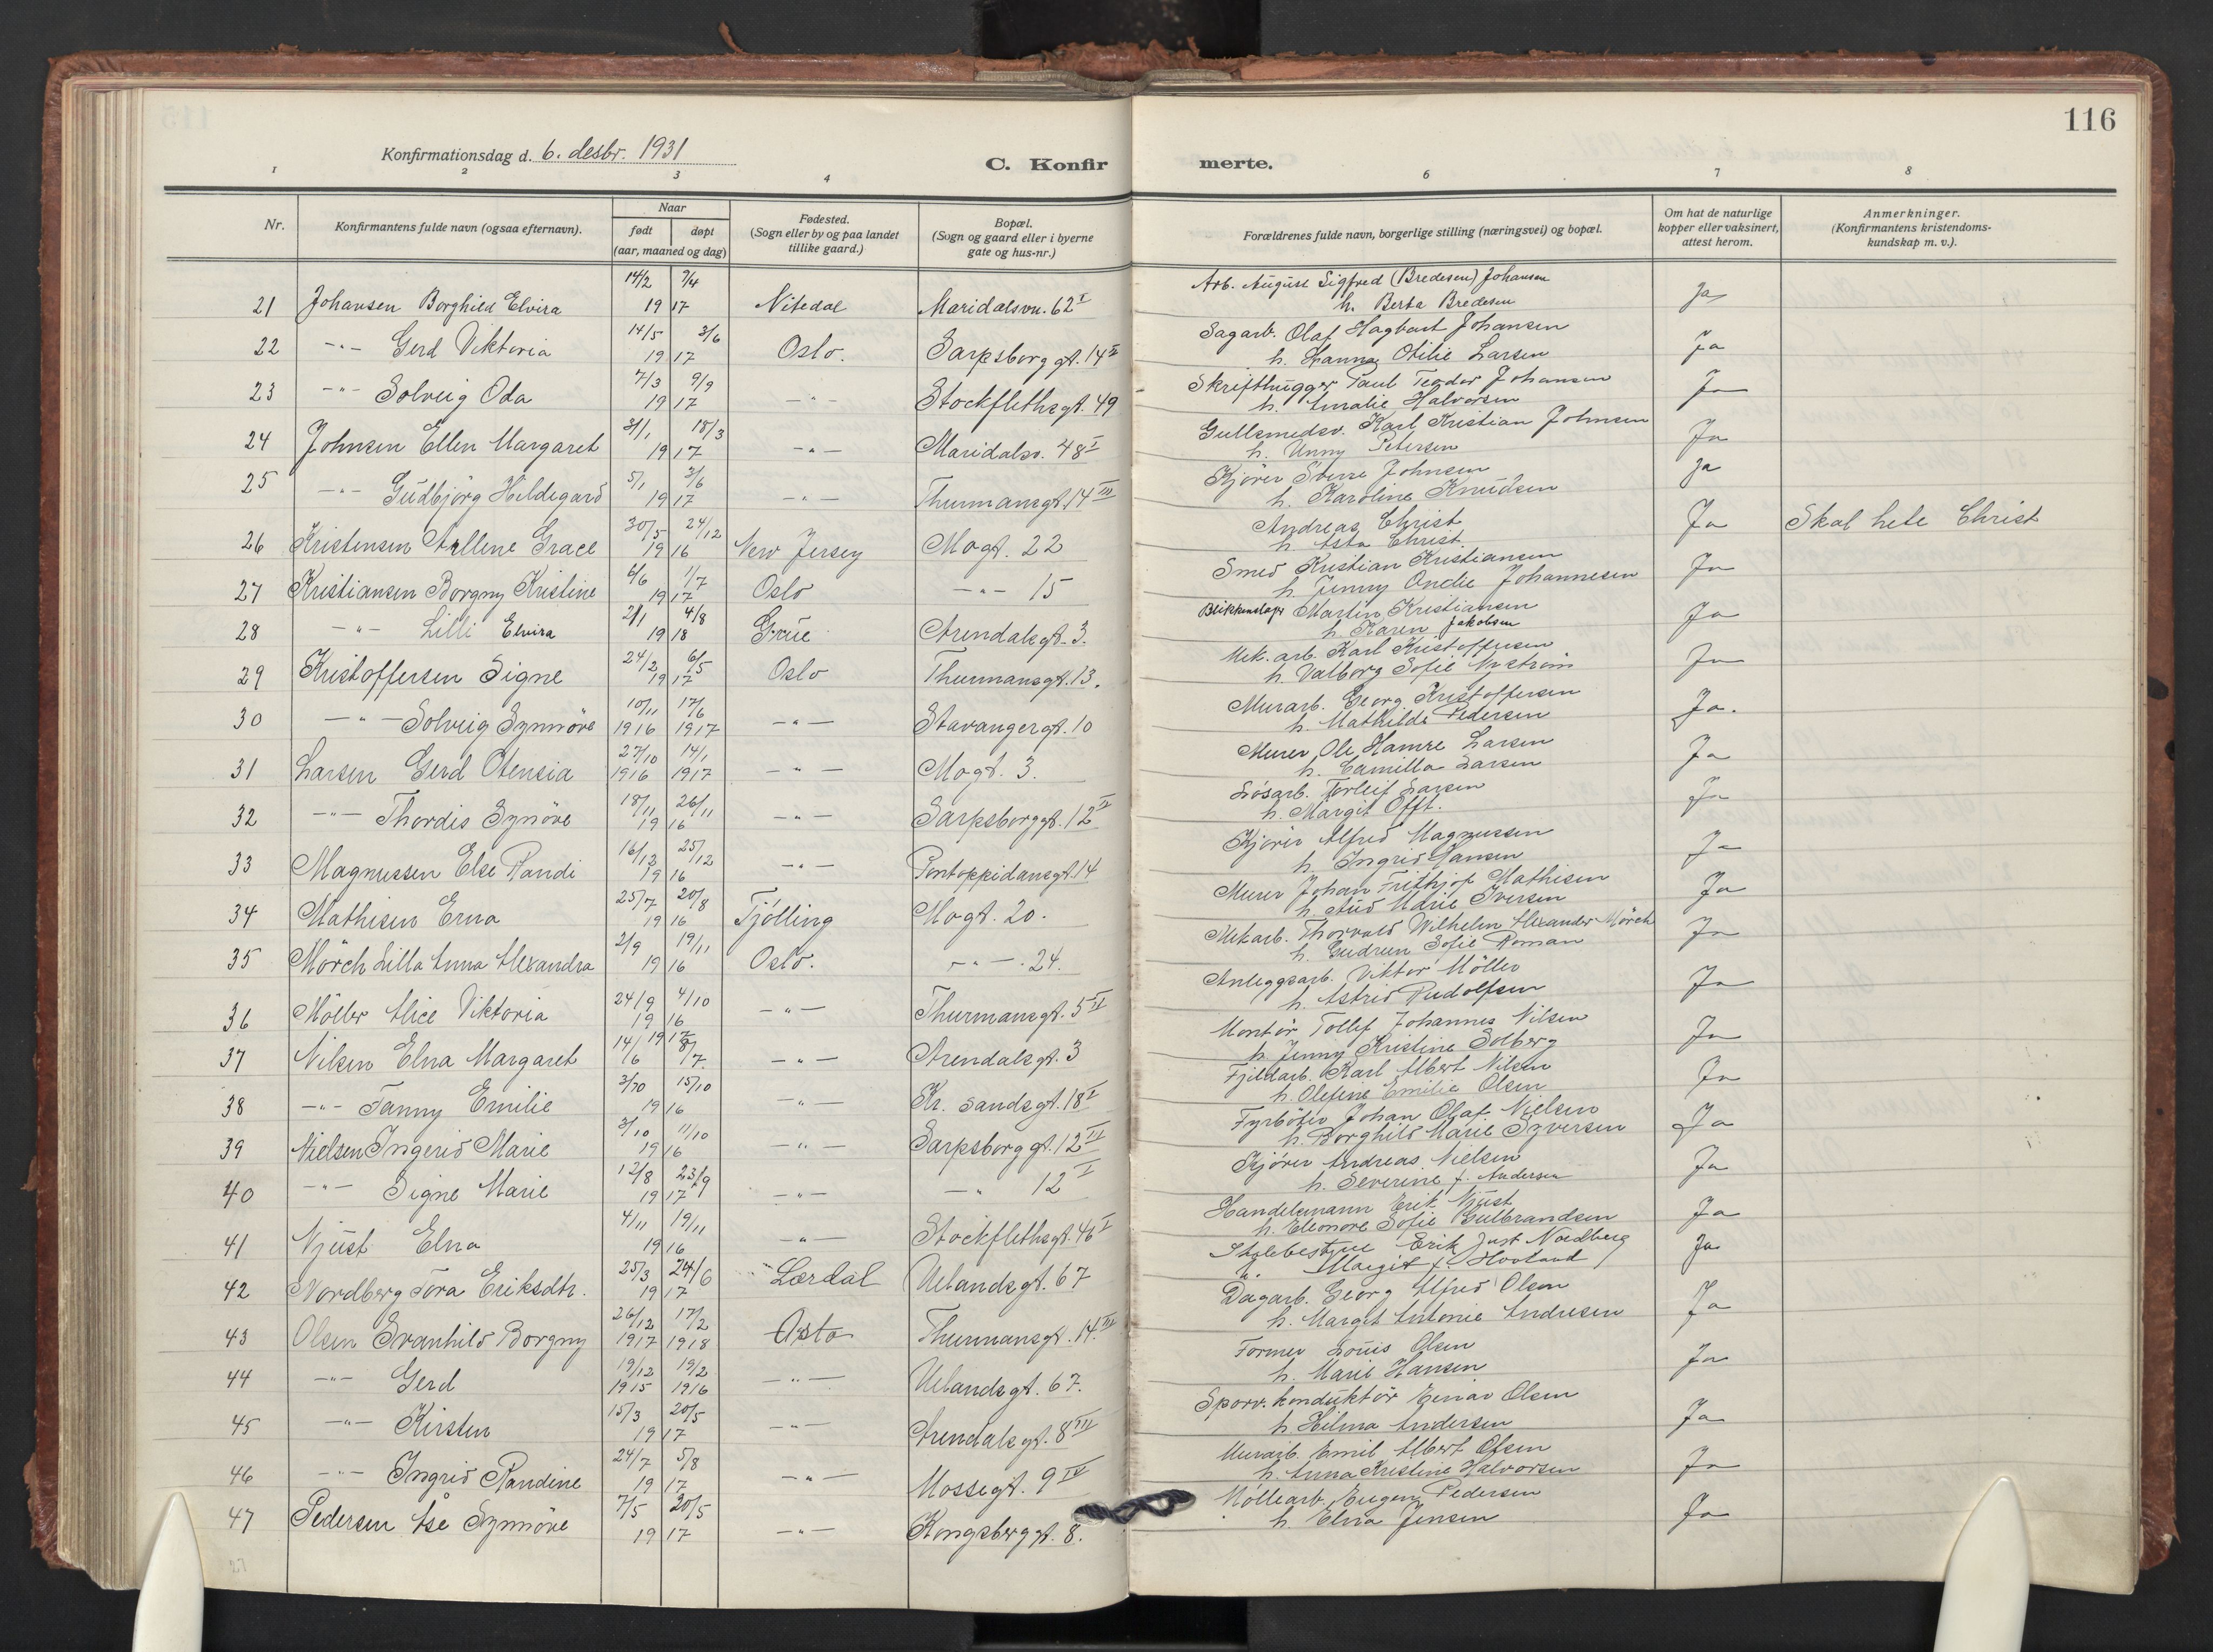 116
Konfirmationsdag d. 6. desbr. 1931
C. Konfirmerte.
1 2 3 4 6 7 8
Nr.
Konfirmantens fulde navn (ogsaa efternavn).
Naar
født døpt
(aar, maaned og dag)
Fødested.
(Sogn eller by og paa landet
tillike gaard.)
Bopæl.
(Sogn og gaard eller i byerne
gate og hus-nr.)
Forældrenes fulde navn, borgerlige stilling (næringsvei) og bopæl.
Om hat de naturlige
kopper eller vaksinert,
attest herom.
Anmerkninger.
(Konfirmantens kristendoms-
kundskap m. v.).
14/2 9/4 Arb. August Sigfred (Bredesen) Johansen
21 Johansen Borghild Elvira 19 17 Nitedal Maridalsvn. 62 I h. Berta Bredesen Ja
14/5 3/6 Sagarb. Olaf Hagbart Johansen
22 -"- Gerd Viktoria 19 17 Oslo. Sarpsborg gt. 14 II h. Hanna Otilie Larsen Ja
7/3 9/9 Skrifthugger Paul Teodor Johansen
23 -"- Solveig Oda 19 17 -"- Stockflethsgt. 49 h. Amalie Halvorsen Ja
31/1 18/3 Gullsmedsv. Karl Kristian Johnsen
24 Johnsen Ellen Margaret 19 17 -"- Maridalsv. 48 I h. Unny Petersen Ja
5/1 3/6 Kjörer Sverre Johnsen
25 -"- Gudbjörg Hildegard 19 17 -"- Thurmansgt. 14 III h. Karoline Knudsen Ja
30/5 24/12 Andreas Christ
26 Kristensen Arllene Grace 19 16 New Jersey Mogt. 22 h. Asta Christ Ja Skal hete Christ
6/6 1/7 Smed Kristian Kristiansen
27 Kristiansen Borgny Kristine 19 17 Oslo -"- 15 h. Jenny Ondie Johannesen Ja
2/1 4/8 Blikkenslager Martin Kristiansen
28 -"- Lilli Elvira 19 18 Grue Arendalsgt. 3. h. Karen Jakobsen Ja
24/2 6/5 Mek. arb. Karl Kristoffersen
29 Kristoffersen Signe 19 17 Oslo Thurmansgt. 13. h. Valborg Sofie Nyström Ja
10/11 17/6 Murarb. Georg Kristoffersen
30 -"- Solveig Synnöve 1916 1917 -"- Stavangergt. 10 h. Mathilde Pedersen Ja.
27/10 14/1 Murer Ole Hamre Larsen
31 Larsen Gerd Otensia 1916 1917 -"- Mogt. 3. h. Camilla Larsen Ja
18/11 26/11 Lösarb. Torleif Larsen
32 -"- Thordis Synöve 19 16 -"- Sarpsborggt. 12 II h. Margit Offt. Ja
16/12 25/12 Kjörer Alfred Magnussen
33 Magnussen Else Randi 19 16 -"- Pontoppidansgt. 14 h. Ingrid Hansen Ja
25/7 20/8 Murer Johan Frithjof Mathisen
34 Mathisen Erna 19 16 Tjölling Mogt. 20. h. Aud Marie Iversen Ja
2/9 19/11 Mek arb. Thorvald Wilhelm Alexander Mörch
35 Mörch Lilla Anna Alexandra 19 16 Oslo. -"- 24. h. Gudrun Sofie Roman Ja
24/9 4/10 Anleggsarb. Viktor Möller
36 Möller Alice Viktoria 19 16 -"- Thurmansgt. 5 II h. Astrid Rudolfsen Ja
14/6 1917 8/7 Montör Tollef Johannes Nilsen
37 Nilsen Elna Margaret -"- Arendalsgt. 3 h. Jenny Kristine Solberg Ja
3/10 15/10 Fjeldarb. Karl Albert Nilsen
38 -"- Fanny Emilie 19 16 -"- Kr. sandsgt. 18 I h. Olefine Emilie Olsen Ja
3/10 11/10 Fyrböter Johan Olaf Nielsen
39 Nielsen Ingerid Marie 19 16 -"- Sarpsborggt. 12 III h. Borghild Marie Syversen Ja
12/8 23/9 Kjörer Andreas Nielsen
40 -"- Signe Marie 19 17 -"- -"- 12 I h. Severine f. Andersen Ja
4/11 19/11 Handelsmann Erik Njust
41 Njust Elna 19 16 -"- Stockflethsgt. 46 I h. Eleonore Sofie Gulbrandsen Ja
25/3 24/6 Skolebestyrer Erik Just Nordberg
42 Nordberg Tora Eriksdtr. 19 17 Lærdal Uelandsgt. 67 h. Margit f. Hovland Ja
26/12 17/2 Dagarb. Georg Alfred Olsen
43 Olsen Svanhild Borgny 1917 1918 Oslo Thurmansgt. 14. III h. Margit Antonie Andresen Ja
19/12 19/2 Former Louis Olsen
44 -"- Gerd 1915 1916 -"- Uelandsgt. 67. h. Marie Hansen Ja
15/3 20/5 Sporv. konduktör Einar Olsen
45 -"- Kirsten 19 17 -"- Arendalsgt. 8 III h. Hilma Andersen Ja
24/7 5/8 Murarb. Emil Albert Olsen
46 -"- Ingrid Randine 19 17 -"- Mossegt. 9 IV h. Anna Kristine Halvorsen Ja
7/5 20/5 Möllearb. Eugen Pedersen
47 Pedersen Åse Synnöve 19 17 -"- Kongsberggt. 8. h. Elna Jensen Ja